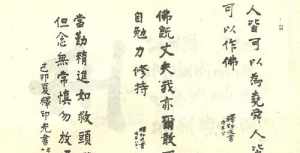 人皆可以為堯舜人皆
可以作佛
佛説丈夫我亦爾敢
自勉力修持
當勤精進如救頭
但念無常慎勿放
己卯夏釋印光書